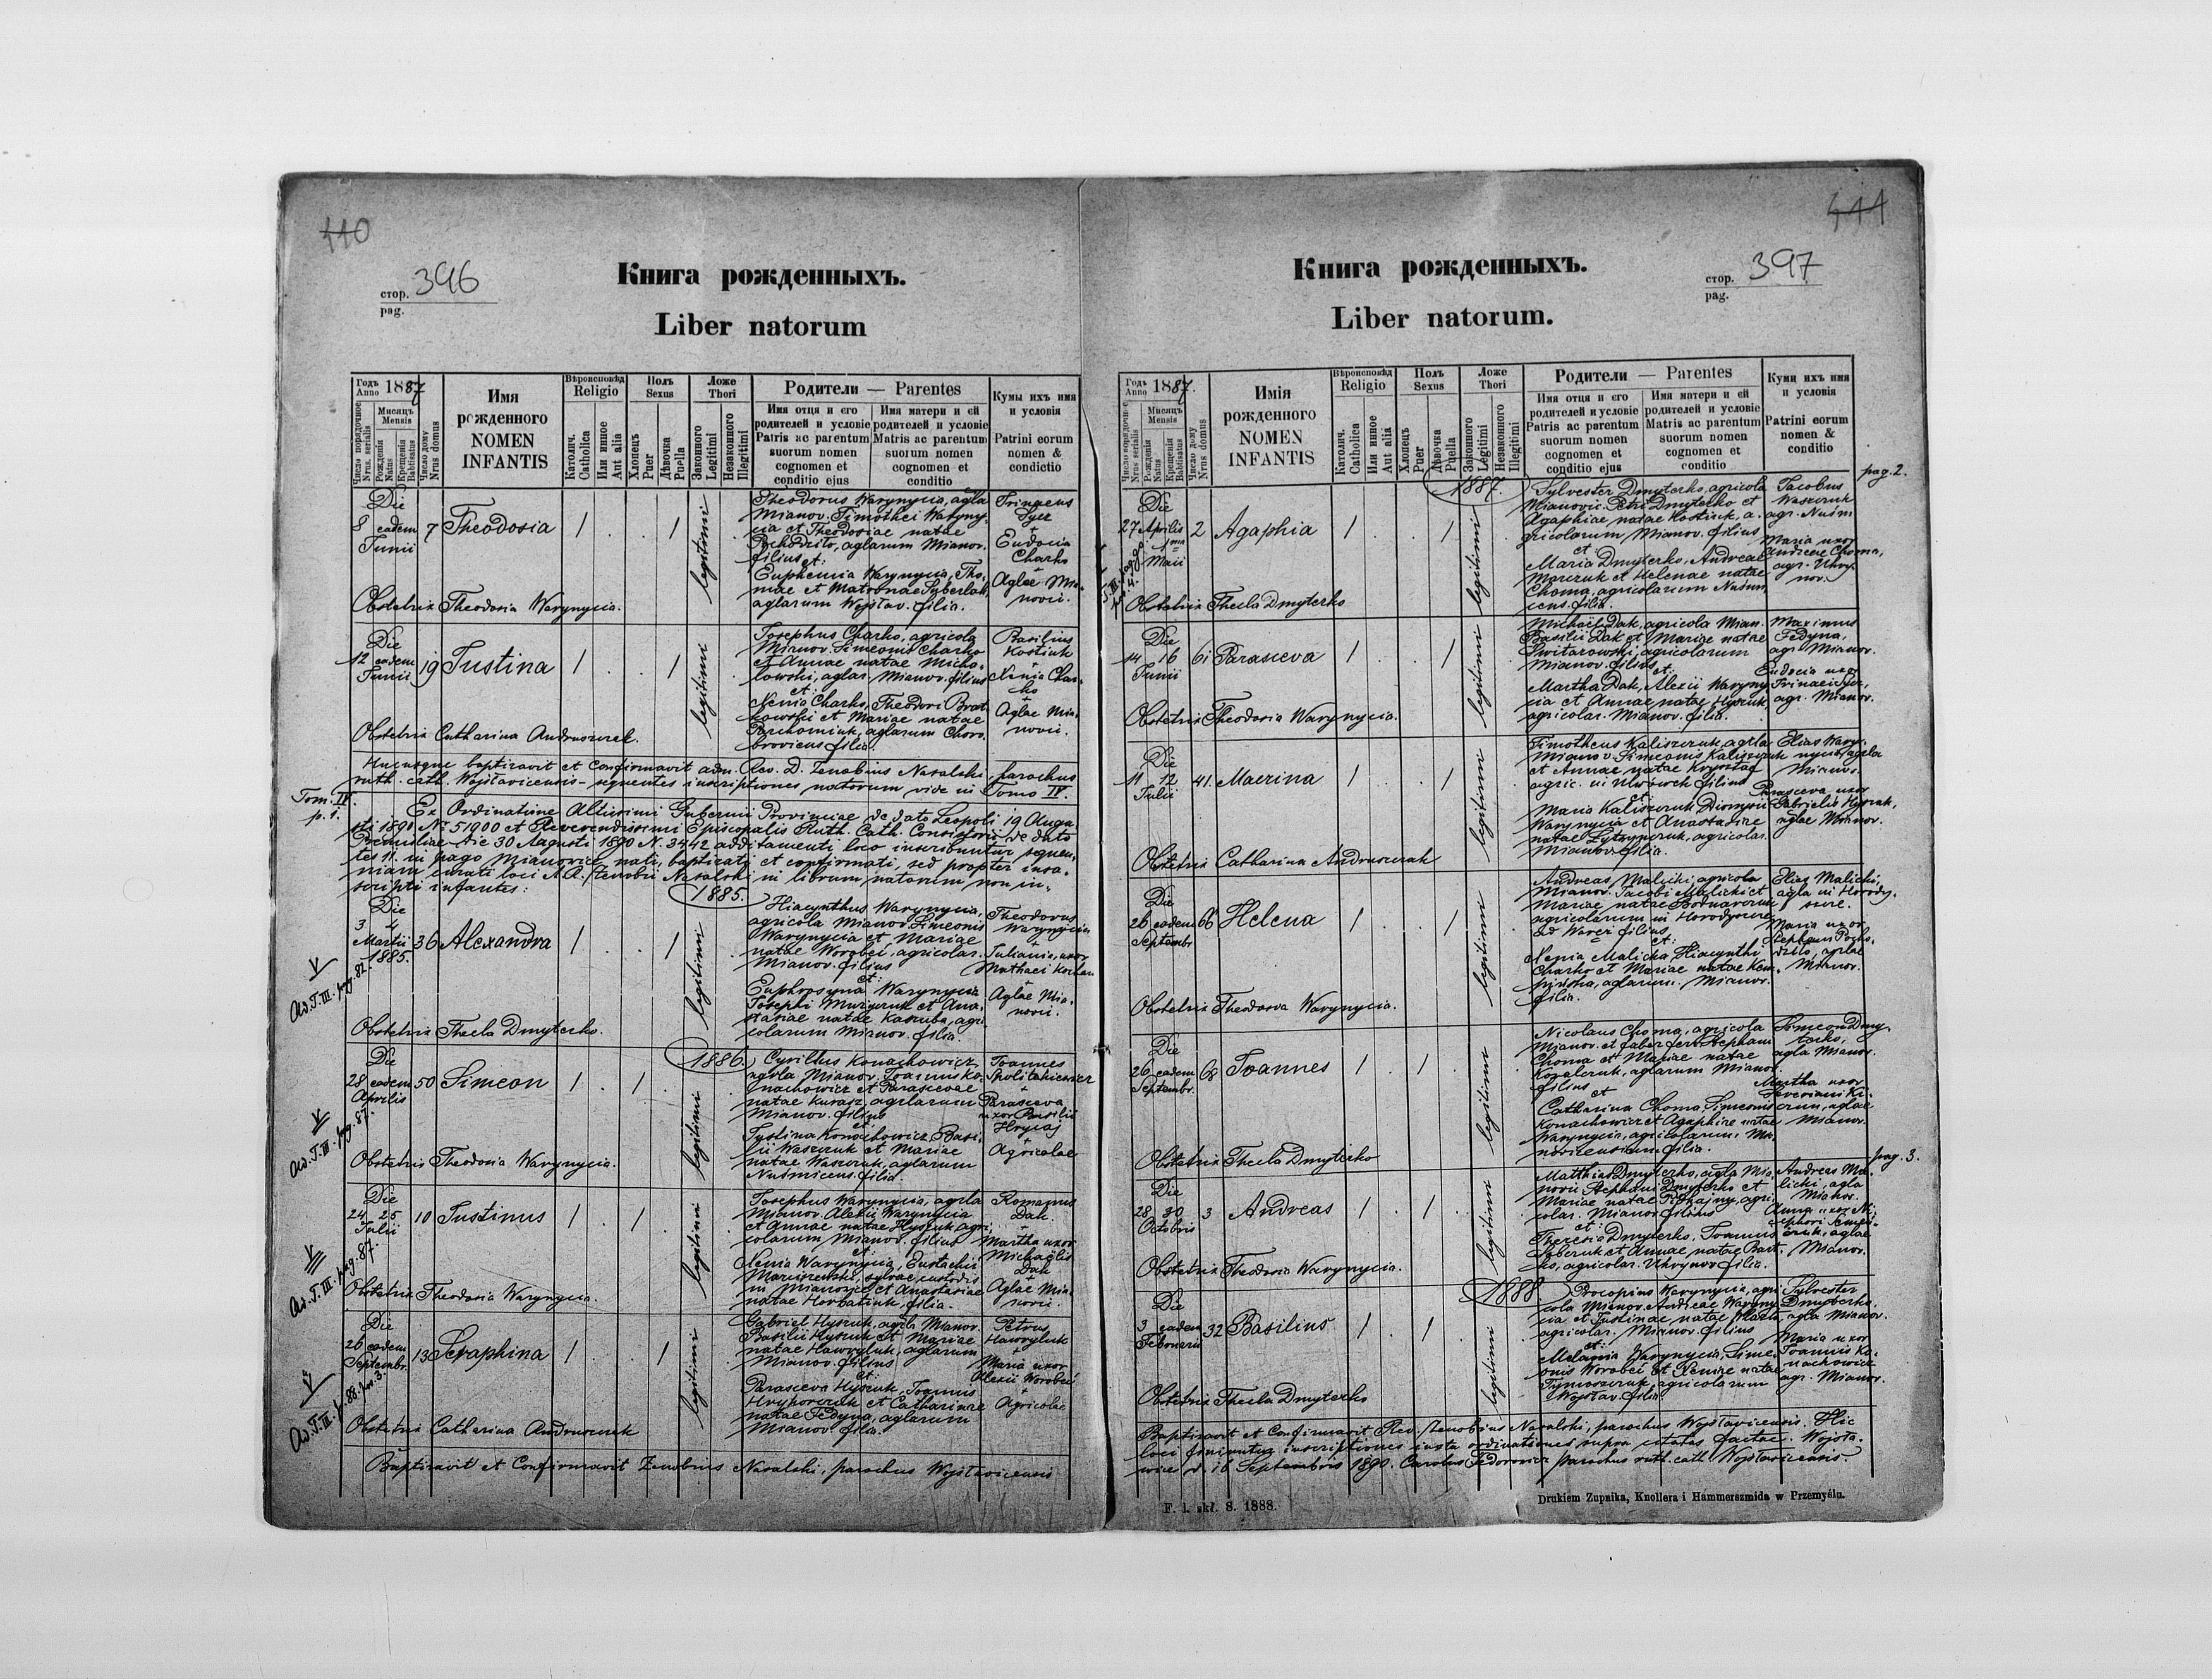 440
стор. 396
pag.
Книга рожденныхъ.
Liber natorum
Годъ 1887
Anno
Число порядочное
Nrus. serialis
Мисяцъ
Mensis
Рожденія
Natus
Крещенія
Babtisatus
Число дому
Nrus domus
Имя
рожденного
NOMEN
INFANTIS
Вѣроисповѣд
Religio
Католич.
Catholica
Или инное
Aut alia
Полъ
Sexus
Хлопецъ
Puer
Дѣвочка
Puella
Ложе
Thori
Законного
Legitimi
Незаконного
Illegitimi
Родители — Parentes
Имя отця и его
родителей и условіе
Patris ac parentum
suorum nomen
cognomen et
conditio ejus
Имя матери и ей
родителей и условіе
Matris ac parentum
suorum nomen
cognomen et
conditio
Кумы ихъ имя
и условія
Patrini eorum
nomen &
condictio
Die
8 eadem
Junii
7 Theodosia 1 . . 1 legitimi
Theodorus Warynycia, agla
Mianov. Timothei Waryny-
cia et Theodosiae natae
Pochodzilo, aglarum Mianov.
filius et:
Euphemia Warynycia, Tho-
mae et Matronae Syberlak,
aglarum Wojstav. filia.
Eudocia
Charko
Aglae Mia-
novii.
Obstetrix Theodosia Warynycia.
Die
12 eadem
Junii
19 Justina 1 . . 1 legitimi
Josephus Charko, agricola
Mianov. Simeonis Charko
et Annae natae Micha-
lowski, aglar. Mianov. filius
et:
Xenia Charko, Theodori Brat-
kowski et Mariae natae
Parchomiuk, aglarum Choro-
brovicens filia.
Basilius
Kostiuk
+
Xenia Char-
ko
+
Aglae Mia-
novii.
Obstetrix Catharina Andruszczak.
Hucusque baptizavit et Confirmavit adm. Rev. D. Zenobius Nasalski, parochus
ruth. cath. Wojslavicensis – sequentes inscriptiones natorum vide in Tomo IV.
Tom. IV.
p. 1.
Ex Ordinatione Altissimi Gubernii Provinciae de dato Leopoli 19 Augu-
sti 1890 № 51900 et Reverendissimi Episcopalis Ruth. Cath. Consistorii de dato
Premisliae die 30 Augusti 1890 N. 3442 additamenti loco inscribuntur sequen-
tes 11. in pago Mianowice nati, baptizati et confirmati, sed propter insa-
niam curati loci A.R. Zenobii Nasalski in librum natorum non in-
scripti infantes:
1885.
Die
3 4
Martii
1885.
36 Alexandra 1 . . 1 . legitimi
Hiacynthus Warynycia,
agricola Mianov. Simeonis
Warynycia et Mariae
natae Worobei, agricolas.
Mianov. filius
et:
Euphrosyna Warynycia
Josephi Muzyczuk et Ana-
stasiae natae Kaskuba, agri-
colarum Mianov. filia.
Theodorus
Warynycia
+
Juliania, uxor
Mathaei Kochan
+
Aglae Mia-
novii.
Ad. T. III. pag. 82.
Obstetrix Thecla Dmyterko.
1886.
Die
28 eadem
Aprilis
50 Simeon 1 . 1 . legitimi
Cyrillus Konachowicz,
agrla Mianov. Joannis Ko-
nachowicz et Parascevae
natae Kurasz, agrlarum
Mianov. filius
et
Justina Konachowicz, Basi-
lii Waszczuk et Mariae
natae Waszczuk, aglarum
Nusmicens. filia.
Joannes
Spolitakiewicz
+
Parasceva
uxor Basilii
Hrycaj
+
Agricolae
Ad. T. III. pag. 87.
Obstetrix Theodosia Warynycia.
Die
24 25
Julii
10 Justinus 1 . 1 . legitimi
Josephus Warynycia, agrla
Mianov. Alexii Warynycia
et Annae natae Hyszuk, agri-
colarum Mianov. filius
et:
Xenia Warynycia, Eustachii
Marciszewski, sylvae custodis
in Mianowice et Anastasiae
natae Horbatiuk, filia.
Romanus
Dak.
+
Martha uxor
Michaëlis
Dak
+
Aglae Mia-
novii.
Ad. T. III. pag. 87.
Obstetrix Theodosia Warynycia.
Die
26 eadem
Septembr.
13 Seraphina 1 . . 1 legitimi
Gabriel Hyszuk, agrla Mianov.
Basilii Hyszuk et Mariae
natae Hawryluk, aglarum
Mianov. filius
et:
Parasceva Hyszuk, Joannis
Hryhorczuk et Catharinae
natae Fedyna, aglarum
Mianov. filia.
Petrus
Hawryluk
+
Maria uxor
Alexii Worobei
+
Agricolae
Ad. T. III. p. 88. pos. 3.
Obstetrix Catharina Andruszczak
Baptizavit et Confirmavit Zenobius Nasalski, parochus Wojslavicensis
444
Книга рожденныхъ.
стор. 397
pag.
Liber natorum.
Годъ 1887.
Anno
Число порядочное
Nrus serialis
Мисяцъ
Mensis
Рожденія
Natus
Крещенія
Babtisatus
Число дому
Nrus domus
Имія
рожденного
NOMEN
INFANTIS
Вѣроисповѣд
Religio
Католич.
Catholica
Или инное
Aut alia
Полъ
Sexus
Хлопецъ
Puer
Дѣвочка
Puella
Ложе
Thori
Законного
Legitimi
Незаконного
Illegitimi
Родители — Parentes
Имя отця и его
родителей и условіе
Patris ac parentum
suorum nomen
cognomen et
conditio ejus
Имя матери и ей
родителей и условіе
Matris ac parentum
suorum nomen
cognomen et
conditio
Кумы ихъ имя
и условія
Patrini eorum
nomen &
conditio
pag. 2.
1887.
Die
27 Aprilis
1ma
Maii
2 Agaphia 1 . . 1 legitimi
Sylvester Dmyterko, agricola
Mianovic. Petri Dmyterko et
Agaphiae natae Kostiuk, a-
gricolarum Mianov. filius
et
Maria Dmyterko, Andreae
Marczuk et Helenae natae
Choma, agricolarum Nusm-
icens. filia.
Jacobus
Waszczuk
agr. Nusm
Maria uxor
Andreae Choma,
agr. Uhry-
nov.
Obstetrix Thecla Dmyterko
Die
14 16
Junii
61 Parasceva 1 . . 1 . legitimi
Michaël Dak, agricola Mian.
Basilii Dak et Mariae natae
Switarowski, agricolarum
Mianov. filius
et:
Martha Dak, Alexii Waryny-
cia et Annae natae Hyszuk,
agricolar. Mianov. filia.
Maximus
Fedyna,
agr. Mianov.
Eudocia uxor
agr. Mianov.
Obstetrix Theodosia Warynycia.
Die
11 12
Julii
41. Macrina 1 . . 1 . legitimi
Timotheus Kaliszczuk, agrla
Mianov. Simeonis Kaliszczuk
et Annae natae Krysztaf
agric. in Uhrynow filius
et:
Maria Kaliszczuk Dionysii
Warynycia et Anastasiae
natae Lytwynczuk, agricolar.
Mianov. filia.
Elias Wary-
nycia, agrla
Mianov.
Parasceva uxor
Gabrielis Hyszuk,
aglae Mianov.
Obstetrix Catharina Andruszczak
Die
26 eadem
Septembr.
66 Helena 1 . . 1 . legitimi
Andreas Malicki, agricola
Mianov. Jacobi Malicki et
Mariae natae Bodnarczuk
agricolarum in Horodyszcze
ad Warez filius
et:
Xenia Malicka, Hiacynthi
Charko et Mariae natae Kem-
pinska, aglarum. Mianov.
filia.
Elias Malicki,
agla in Horody-
szcze.
Maria uxor
Stephani Pocho-
dzilo, aglae
Mianov.
Obstetrix Theodosia Warynycia.
Die
26 eadem
Septembr.
68 Joannes 1 . 1 . legitimi
Nicolaus Choma, agricola
Mianov. et faber ferr. Stephani
Choma et Mariae natae
Kowalczuk, aglarum Mianov.
filius
et
Catharina Choma, Simeonis
Konachowicz et Agaphiae natae
Warynycia, agricolarum Mia-
novicensium filia.
Simeon Dmy-
terko,
agla Mianov.
Martha uxor
aglae
Mianov.
Obstetrix Thecla Dmyterko
pag. 3.
Die
28 30
Octobris
3 Andreas 1 . 1 . legitimi
Matthias Dmyterko, agla Mia-
novii Stephani Dmyterko et
Mariae natae Rohajny, agri-
colar. Mianov. filius
et:
Theresia Dmyterko, Joannis
Syberuk et Annae natae Bart-
ko, agricolar. Uhrynov filia.
Andreas Ma-
licki, agla
Mianov.
Anna uxor Ni-
aglae
Mianov.
Obstetrix Theodosia Warynycia.
1888.
Die
3 eadem
Februarii
32 Basilius 1 . 1 . legitimi
Procopius Warynycia, agri-
cola Mianov. Andreae Waryny-
cia et Justinae natae Hlata,
agricolar. Mianov. filius
et:
Melania Warynycia, Sime-
onis Worobei et Xeniae natae
Tymoszczuk, agricolarum
Wojslav. filia.
Sylvester
Dmyterko,
agla Mianov.
Maria uxor
Joannis Ko-
nachowicz
agr. Mianov.
Obstetrix Thecla Dmyterko
Baptizavit et Confirmavit Rev. Zenobius Nasalski, parochus Wojslavicensis. Hic
loci finiuntur inscriptiones iuxta ordinationes supra citatas factae. Wojsla-
wice d. 16 Septembris 1890. Carolus Fedorowicz parochus ruth. cath. Wojslavicensis.
F. l. skł. 8. 1888.
Drukiem Żupnika, Knollera i Hammerszmida w Przemyślu.